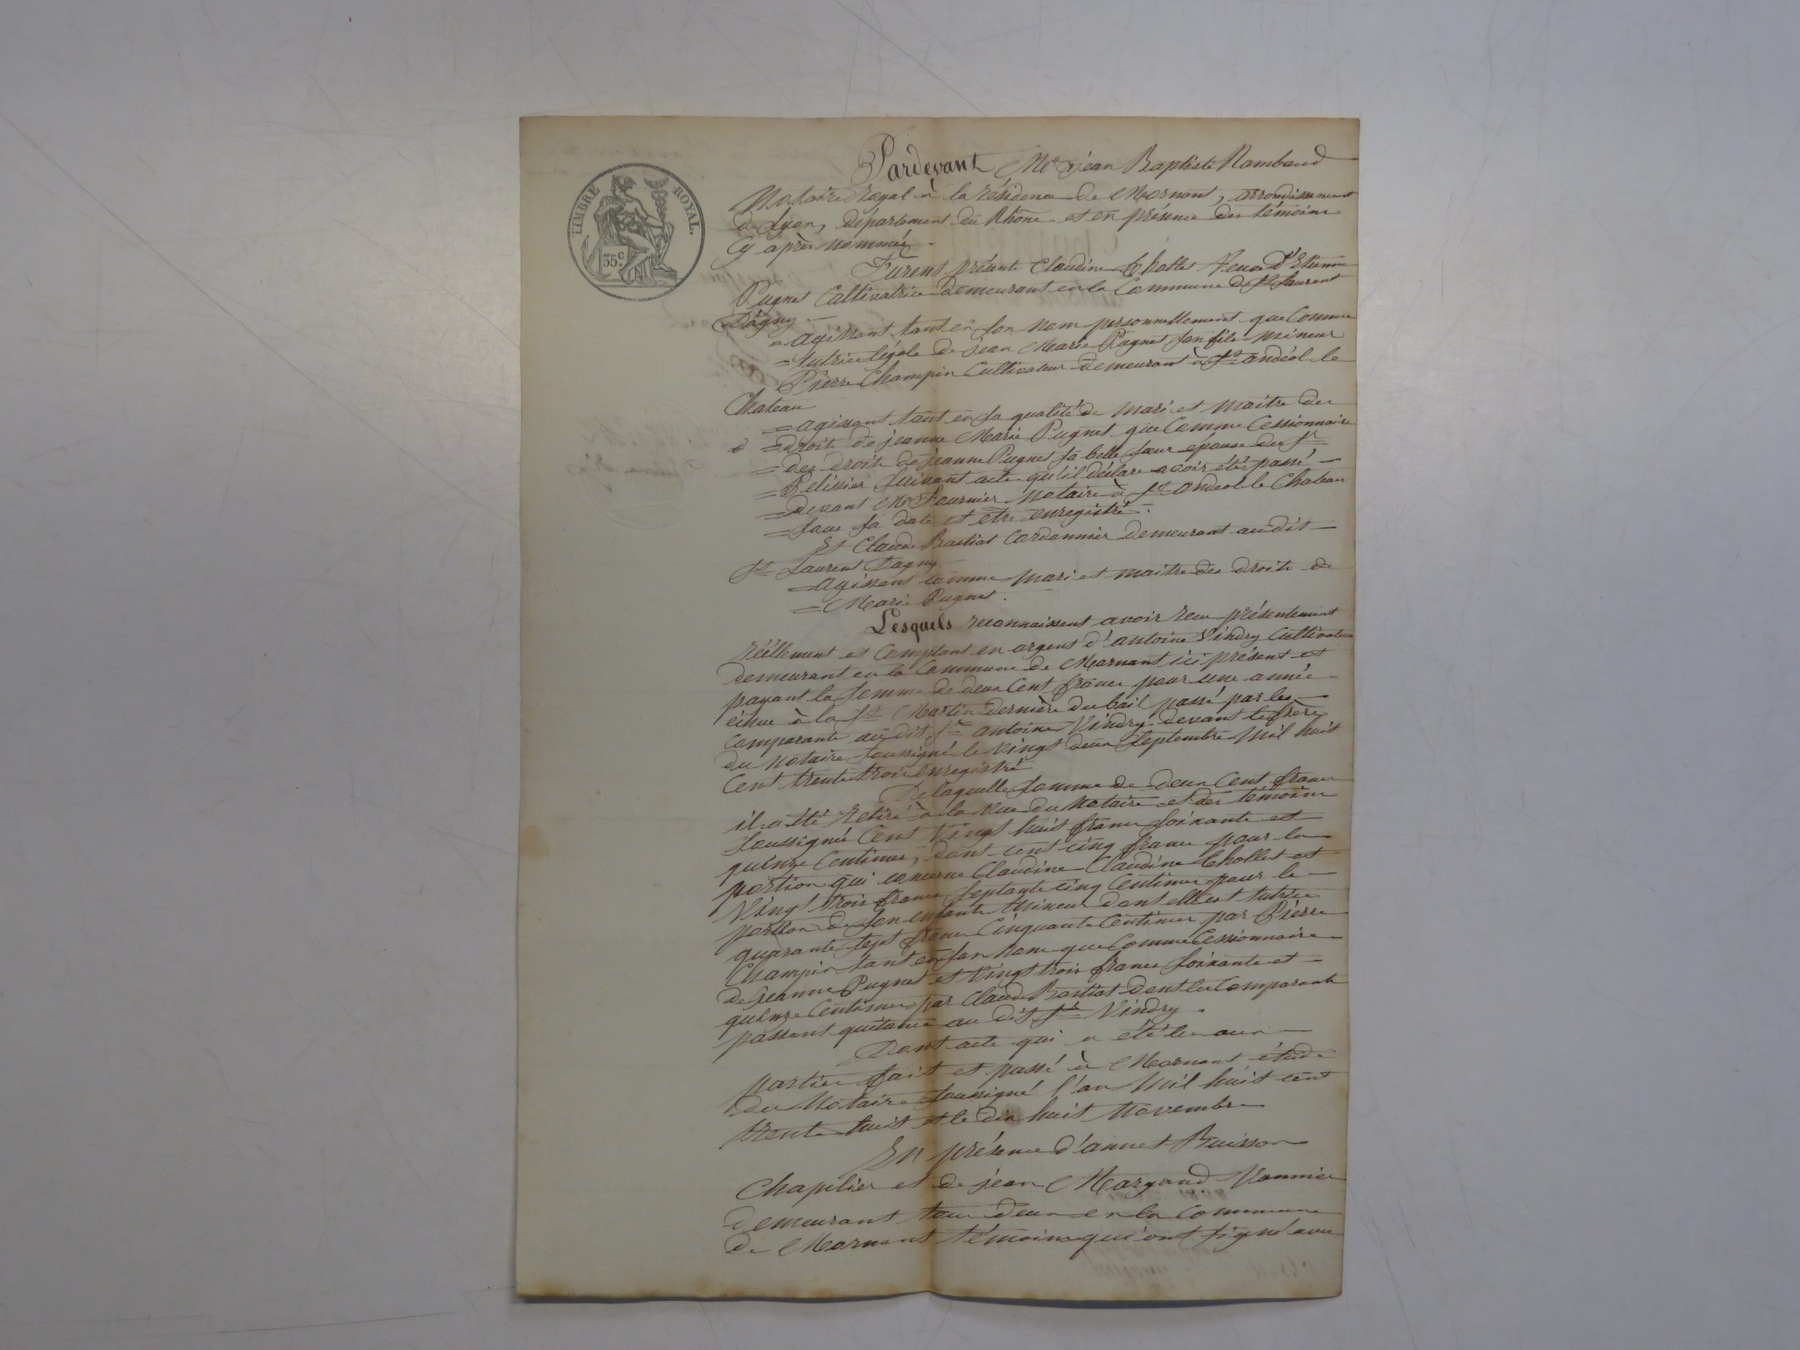 TIMBRE ROYAL.
35c.
Pardevant Me jean Baptiste Rambaud
Notaire Royal à la résidence de Mornant, arrondissement
de Lyon, département du Rhône et en présence des témoins
cy après nommés.
Furent présents Claudine Chollet Veuve d'Etienne
Pugnet Cultivatrice demeurant en la Commune de St Laurent
Dagny
= agissant tant en son nom personnellement que comme
= tutrice légale de jean Marie Pugnet son fils mineur
Pierre Champin Cultivateur demeurant à St andéol le
Chateau
= agissant tant en sa qualité de mari et maitre des
= droits de jeanne Marie Pugnet que comme Cessionnaire
= des droits de jeanne Pugnet sa belle sœur épouse du sr
= Pelissier suivant acte qu'il déclare avoir été passé
= devant Me Fournier Notaire à St andéol le Chateau
= sous sa date et être enregistré.
Et Claude Bastiat Cordonnier demeurant au dit
St Laurent Dagny.
= agissant comme mari et maitre des droits de
= Marie Pugnet.
Lesquels reconnaissent avoir reçu présentement
réellement et comptant en argent d'antoine Vindry Cultivateur
demeurant en la Commune de Mornant ici présent et
payant la somme de deux cent francs pour une année
échue à la St Martin dernière du bail passé par les
comparants au dit sr antoine Vindry devant le frère
du notaire soussigné le vingt deux septembre mil huit
cent trente trois enregistré
De laquelle somme de deux cent francs
il a été retiré à la vue du notaire et des témoins
soussignés Cent vingt huit francs soixante et
quinze Centimes, dont cent cinq francs pour la
portion qui concerne Claudine Claudine Chollet et
vingt trois francs septante cinq Centimes pour la
portion de son enfant mineur dont elle est tutrice
quarante sept francs Cinquante Centimes par Pierre
Champin tant en son nom que comme Cessionnaire
de jeanne Pugnet et vingt trois francs soixante et
quinze Centimes par Claude Bastiat dont les Comparants
passent quittance au dit sr Vindry.
Dont acte qui a été lu aux
parties fait et passé à Mornant étude
du Notaire soussigné l'an mil huit cent
trente huit et le dix huit Novembre
En présence d'annet Buisson
Chapelier et de jean Margand Vannier
demeurant tous deux en la Commune
de Mornant témoins qui ont signé avec